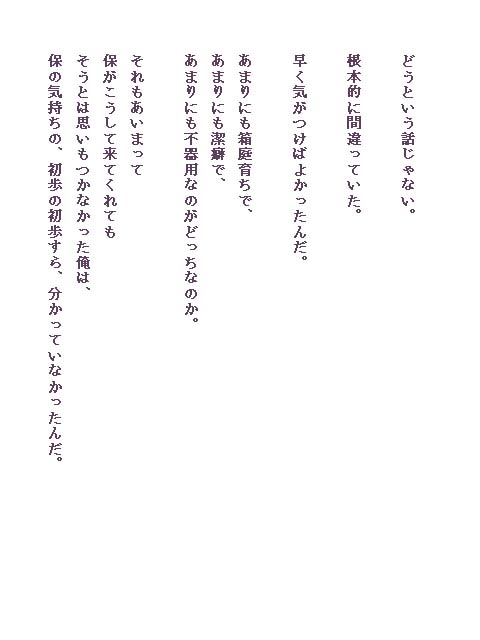 どうという話じゃない。
根本的に間違っていた。
早く気がつけばよかったんだ。
あまりにも箱庭育ちで、
あまりにも潔癖で、
あまりにも不器用なのがどっちなのか。
それもあいまって
保がこうして来てくれても
そうとは思いもつかなかった俺は、
保の気持ちの、初歩の初歩すら、分かっていなかったんだ。